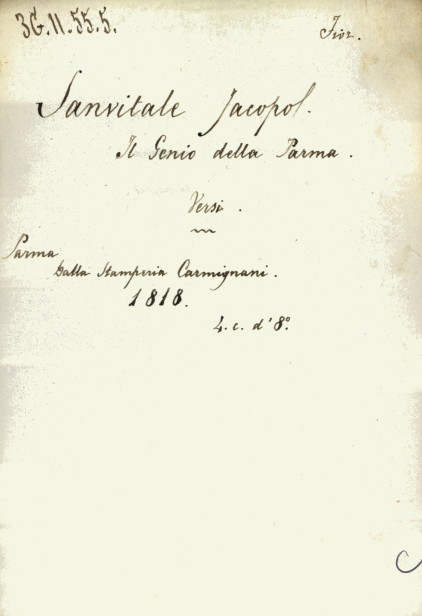 3G.11.55.5.
Sanvitale Jacopo.
Il Genio della Parma.
Versi.
Parma
Dalla Stamperia Carmignani.
1818.
4.c. d'8º.